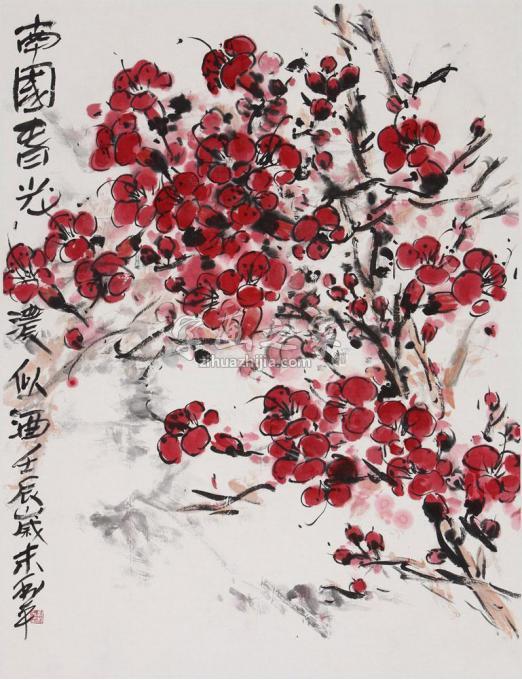 南國春光濃似酒壬辰歲末
字画之家
zihuazhijia.com